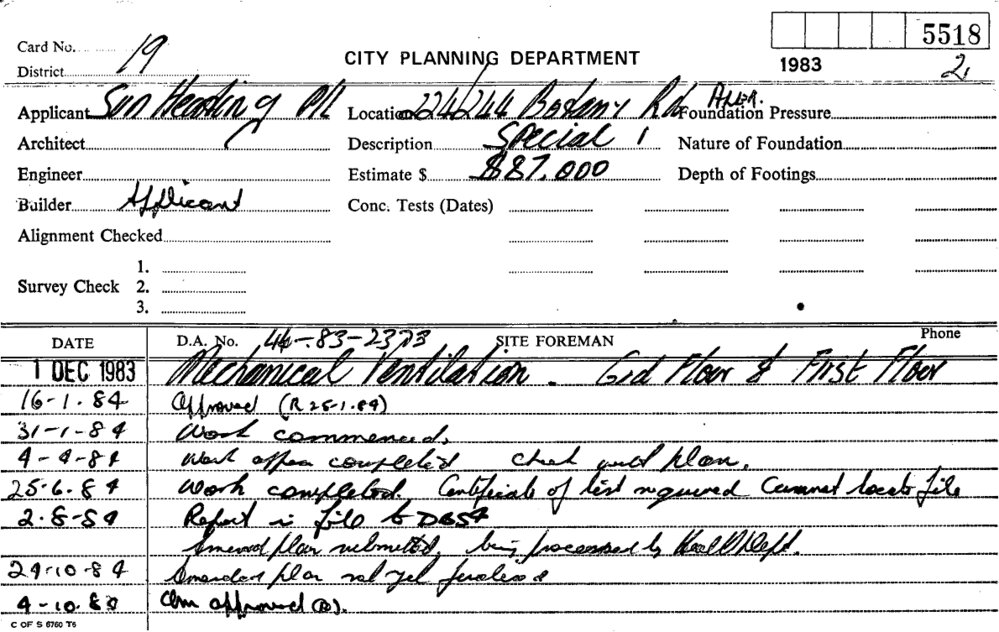 5518
Card No. 19
CITY PLANNING DEPARTMENT
1983
2
District
Applicant Sun Heating P/L Location 224/244 Botany Rd Alex. Foundation Pressure
Architect Description Special 1 Nature of Foundation
Engineer Estimate $ $87.000 Depth of Footings
Builder Applicant Conc. Tests (Dates)
Alignment Checked
1.
Survey Check 2.
3.
DATE D.A. No. 44-83-2373 SITE FOREMAN Phone
1 DEC 1983 Mechanical Ventilation - Grd Floor & First Floor
16-1.84 Approved (R 25-1.84)
31-1-84 Work commenced.
4-4-84 Work appear completed check with plan.
25.6.84 Work completed. Certificate of test required Cannot locate file
2.8-84 Report in file to DBS4
Amended plan submitted, being processed by Health Dept.
29-10-84 Amended plan not yet finalised
4-10. approved (B).
C OF S 6760 T6